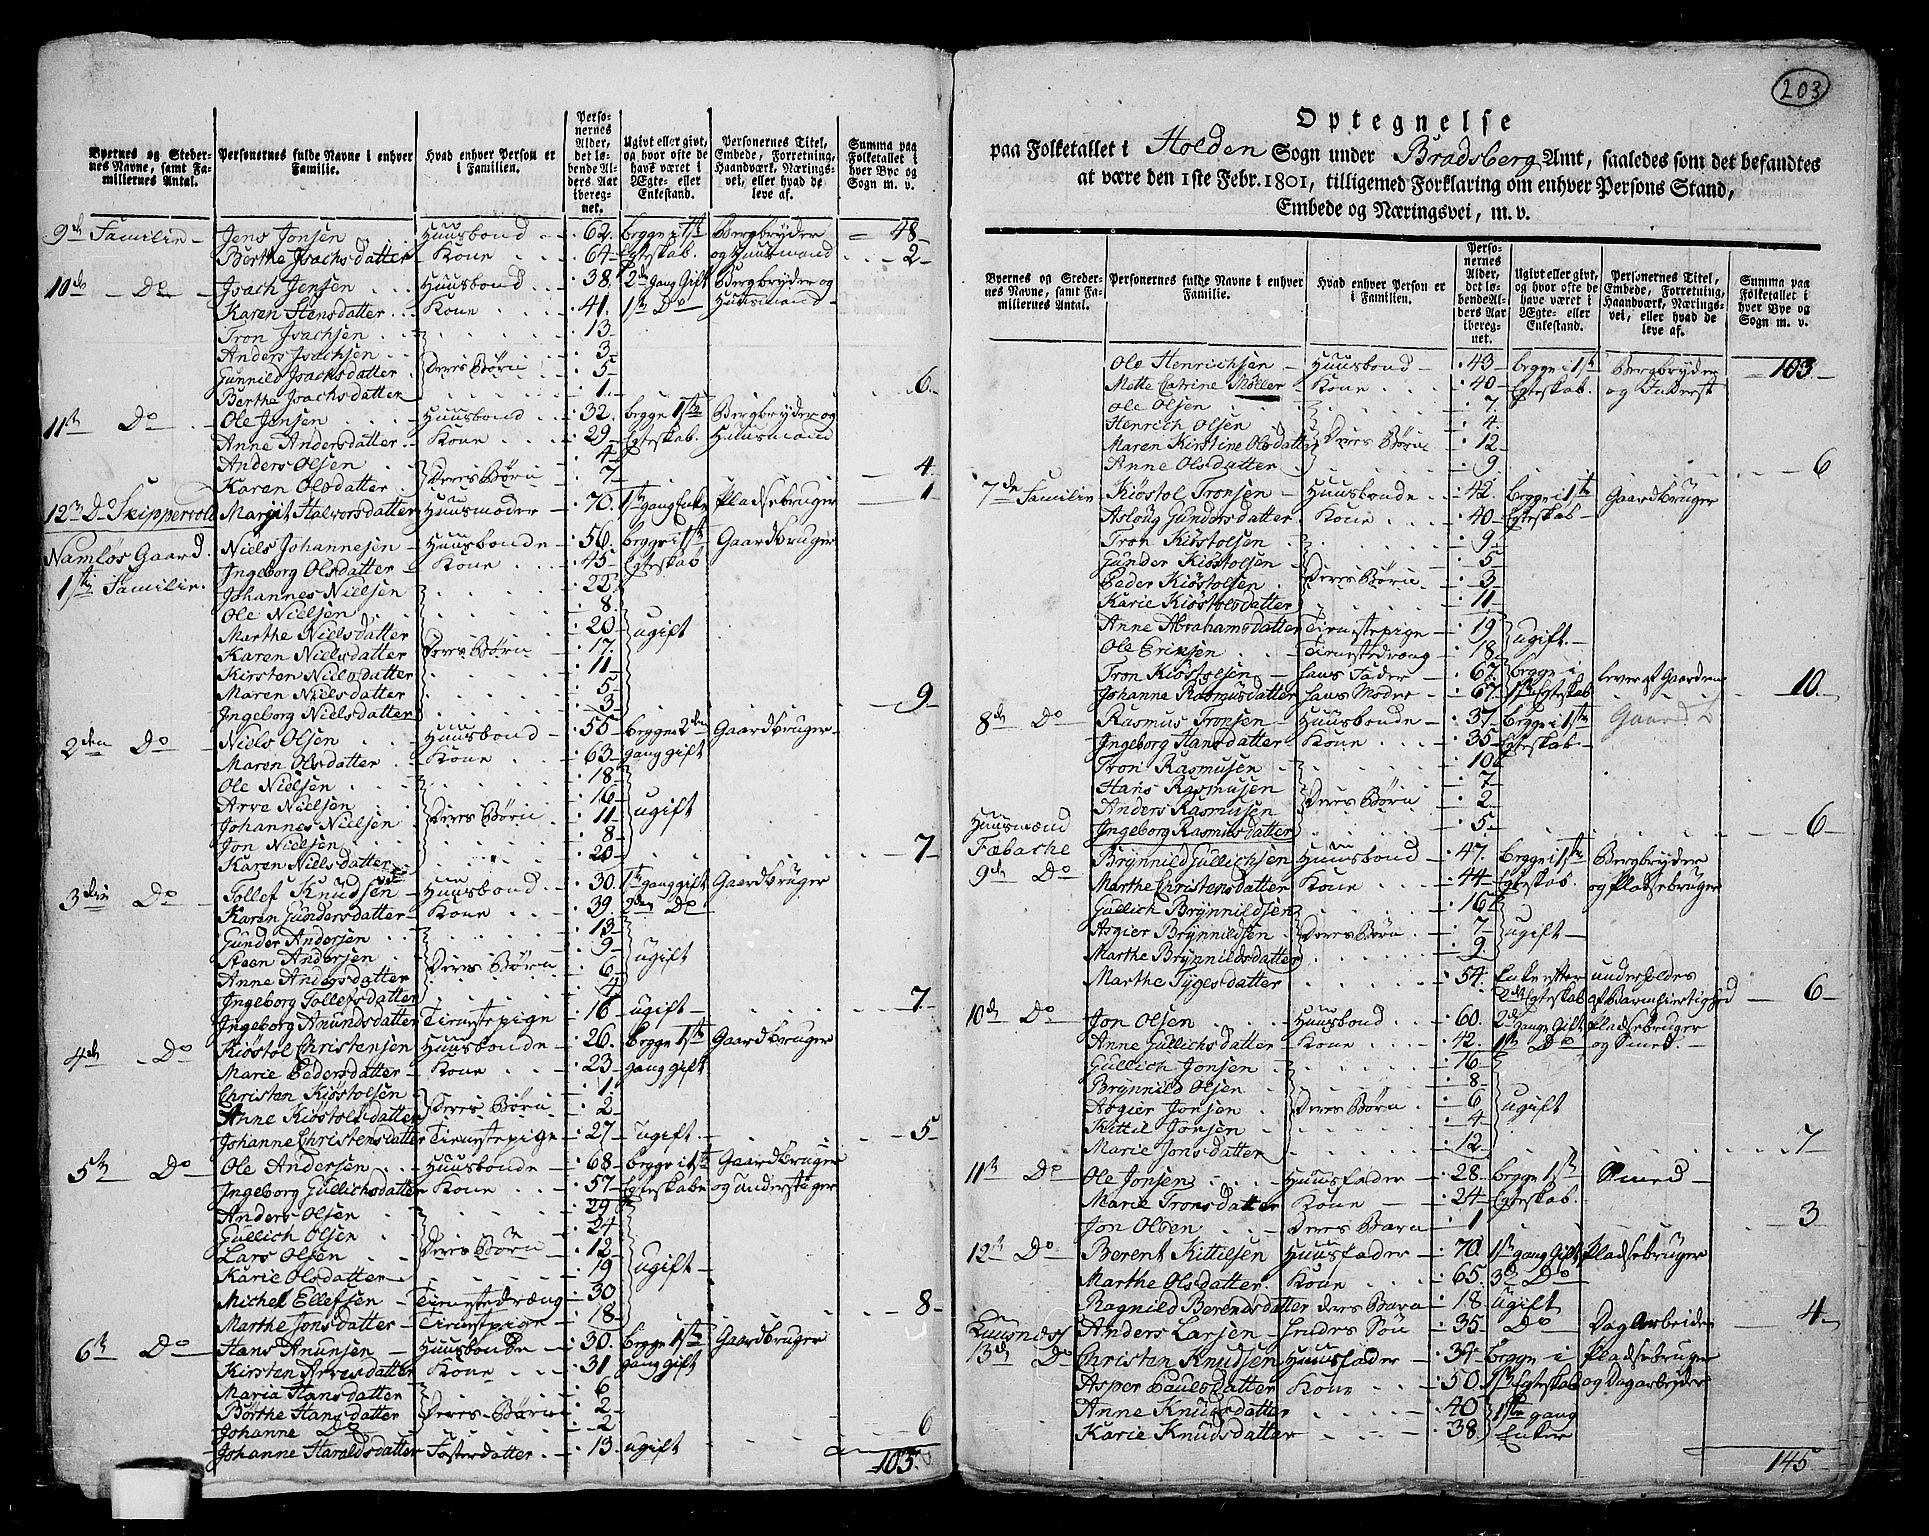 Byernes og Stedernes Navne, samt Familiernes Antal.
Personernes fulde Navne i enhver Familie.
Hvad enhver Person er i Familien.
Personernes Alder, det løbende Alders Aar iberegnet.
Ugivt eller givt, og hvor ofte de have været i Ægte- eller Enkestand.
Personernes Titel, Embede, Forretning, Haandværk, Næringsvei, eller hvad de leve af.
Summa paa Folketallet i hver Bye og Sogn m. v.
9de Familie - Jens Jonsen Huusbond 62 begge i 1ste Bergbryder 48
Berthe Isachsdatter Kone 64 Egteskab. og Huusmand 2
10de Do Isach Jensen Huusbond 38 2den Gang Gift Bergbryder og
Karen Stensdatter Kone 41 1ste Do Huusmand
Tron Isachsen 13
Anders Isachsen 3
Gunnild Isachsdatter Deres Børn 5
Berthe Isachsdatter 1 6
11te Do Ole Jensen Huusbond 32 begge 1ste Bergbryder og
Anne Andersdatter Kone 29 Egteskab. Huusmand
Anders Olsen 4
Karen Olsdatter Deres Børn 7 4
12te Do Skippervold Margit Halvorsdatter Huusmoder 70 1ste Gang Enke Pladsebruger 1
Namløs Gaard. Niels Johannesen Huusbonde 56 begge i 1ste Gaardbruger
Ingeborg Olsdatter Kone 45 Egteskab
1ste Familie. Johannes Nielsen 22
Ole Nielsen 8
Marthe Nielsdatter 20 ugift
Karen Nielsdatter Deres Børn 17
Kirsten Nielsdatter 11
Maren Nielsdatter 5
Ingeborg Nielsdatter 3 9
2den Do Niels Olsen Huusbond 55 begge 2den Gaardbruger
Maren Olsdatter Kone 63 gang gift
Ole Nielsen 18
Arve Nielsen 16
Johannes Nielsen Deres Børn 11 ugift
Jon Nielsen 8
Karen Nielsdatter 20 7
3die Do Tollef Knudsen Huusbond 30 1ste gang gift Gaardbruger
Karen Gundersdatter Kone 39 2den Do
Gunder Andersen 13
Steen Andersen 9
Anne Andersdatter Deres Børn 6 ugift
Ingeborg Tollefsdatter 4
Ingeborg Anundsdatter Tienstepige 16 ugift 7
4de Do Kiøstol Christensen Huusbonde 26 begge 1ste Gaardbruger
Marie Pedersdatter Kone 23 gang gift
Christen Kiøstolsen 1
Anne Kiøstolsdatter Deres Børn 2
Johanne Christensdatter Tienstepige 27 ugift 5
5te Do Ole Andersen Huusbonde 68 begge i 1ste Gaardbruger
Ingeborg Gullichsdatter Kone 57 Egteskabe og understøger
Anders Olsen 29
Gullich Olsen 24
Lars Olsen Deres Børn 12
Karie Olsdatter 19 ugift
Michel Ellefsen Tienstedreng 30
Marthe Jonsdatter Tienstepige 18 8
6te Do Hans Anunsen Huusbonde 30 begge 1ste Gaardbruger
Kirsten Arvesdatter Kone 31 gang gift
Maria Hansdatter 6
Børthe Hansdatter Deres Børn 2
Johanne Do 2 6
Johanne Haraldsdatter Søsterdatter 13 ugift
103
203
Optegnelse
paa Folketallet i Holden Sogn under Bradsberg Amt, saaledes som det befandtes
at være den 1ste Febr. 1801, tilligemed Forklaring om enhver Persons Stand,
Embede og Næringsvei, m. v.
Byernes og Stedernes Navne, samt Familiernes Antal.
Personernes fulde Navne i enhver Familie.
Hvad enhver Person er i Familien.
Personernes Alder, det løbende Alders Aar iberegnet.
Ugivt eller givt, og hvor ofte de have været i Ægte- eller Enkestand.
Personernes Titel, Embede, Forretning, Haandværk, Næringsvei, eller hvad de leve af.
Summa paa Folketallet i hver Bye og Sogn m. v.
Ole Henrichsen Huusbond 43 begge i 1ste Bergbryder 103
Mette Catrine Møller Kone 40 Egteskab. og Inderst
Ole Olsen 7
Henrich Olsen 4
Maren Kirstine Olsdatter Deres Børn 12
Anne Olsdatter 9 6
7de Familie Kiøstol Tronsen Huusbonde 42 begge i 1ste Gaardbruger
Asloug Gundersdatter Kone 40 Egteskab
Tron Kiøstolsen 9
Gunder Kiøstolsen 5
Peder Kiøstolsen Deres Børn 3
Karie Kiøstolsdatter 11
Anne Abrahamsdatter Tienstepige 19 ugift
Ole Eriksen Tienstedreng 18
Tron Kiøstolsen hans Fader 67 begge i lever af Gaarden
Johanne Rasmusdatter hans Moder 67 1ste Egteskab 10
8de Do Rasmus Tronsen Huusbonde 37 begge i 1ste Gaard
Ingeborg Hansdatter Kone 35 Egteskab
Tron Rasmusen 10
Hans Rasmusen 7
Anders Rasmusen Deres Børn 2
Huusmænd Ingeborg Rasmusdatter 5 6
Fæbache Brynnild Gullichsen Huusbond 47 begge i 1ste Bergbryder
9de Do Marthe Christensdatter Kone 44 Egteskab. og Pladsebruger
Gullich Brynnildsen 16
Asgier Brynnildsen Deres Børn 7 ugift
Marthe Brynnildsdatter 9
Marthe Tygesdatter 54 Enke efter underholdes
2det Egteskab af Barmhiertighed 6
10de Do Jon Olsen Huusbond 60 2den Gang Gift Pladsebruger
Anne Gullichsdatter Kone 42 1ste Do og Smed.
Gullich Jonsen 16
Brynnild Olsen 8
Asgier Jonsen Deres Børn 6 ugift
Kittil Jonsen 4
Marie Jonsdatter 12 7
11te Do Ole Jonsen Huusfader 28 begge 1ste Smed
Marie Tronsdatter Kone 24 Egteskab.
Jon Olsen Deres Barn 1 3
12te Do Berent Kittilsen Huusfader 70 1ste gang Gift Pladsebruger
Marthe Olsdatter Kone 65 3de Do
Ragnild Berentsdatter deres Barn 18 Ugift
Anders Larsen hendes Søn 35 Do Dag Arbeider 4
13de Do Christen Knudsen Huusfader 34 begge i Pladsebruger
Asper Paulsdatter Kone 50 1ste Egteskab og Dagarbeyder
Anne Knudsdatter 40 1ste gang
Karie Knudsdatter 38 Enker
145